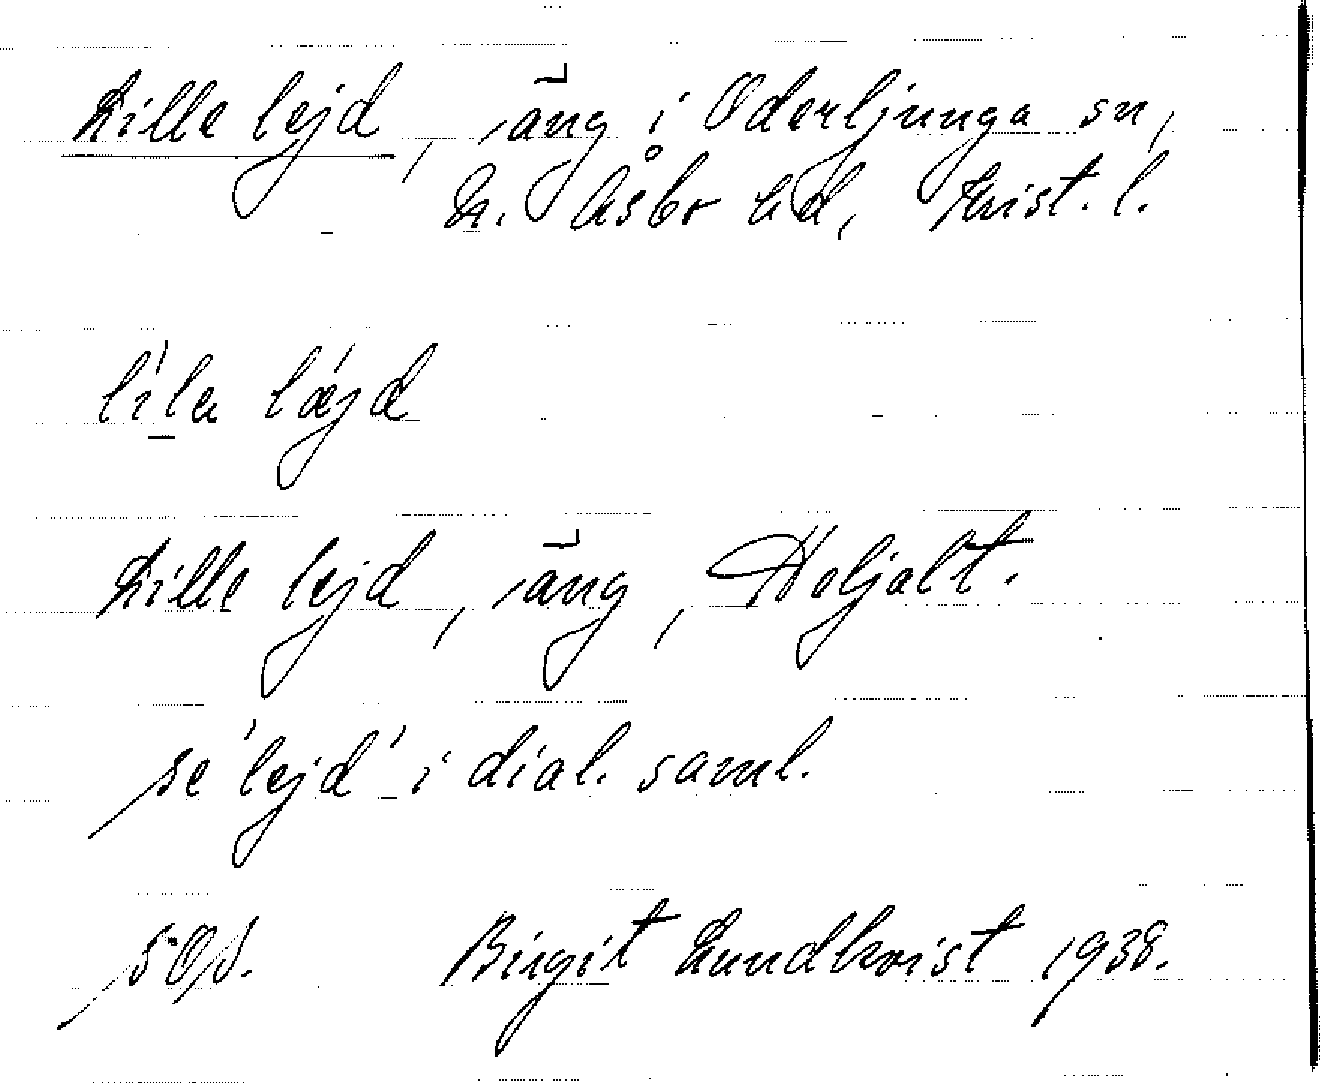 Lille lejd, äng i Oderljunga sn,
N. Åsbo hd, Krist. l.
líla lǽjd
Lille lejd, äng, Holjalt.
se 'lejd' i dial. saml.
Birgit Lundkvist 1938.